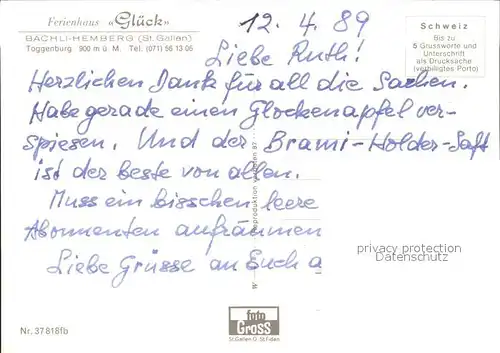 Ferienhaus «Glück»
BÄCHLI-HEMBERG (St.Gallen)
Toggenburg 900 m ü. M. Tel. (071) 56 13 06
12. 4. 89
Schweiz
Bis zu
5 Grussworte und
Unterschrift
als Drucksache
(verbilligtes Porto)
Liebe Ruth!
Herzlichen Dank für all die Sachen.
Habe gerade einen Glockenapfel ver-
spiesen. Und der Brami-Holder-Saft
ist der beste von allen.
Muss ein bisschen leere
Abonnenten aufräumen
Liebe Grüsse an Euch a
privacy protection
Datenschutz
foto
Gross
St.Gallen O. St.Fiden
Nr. 37818fb